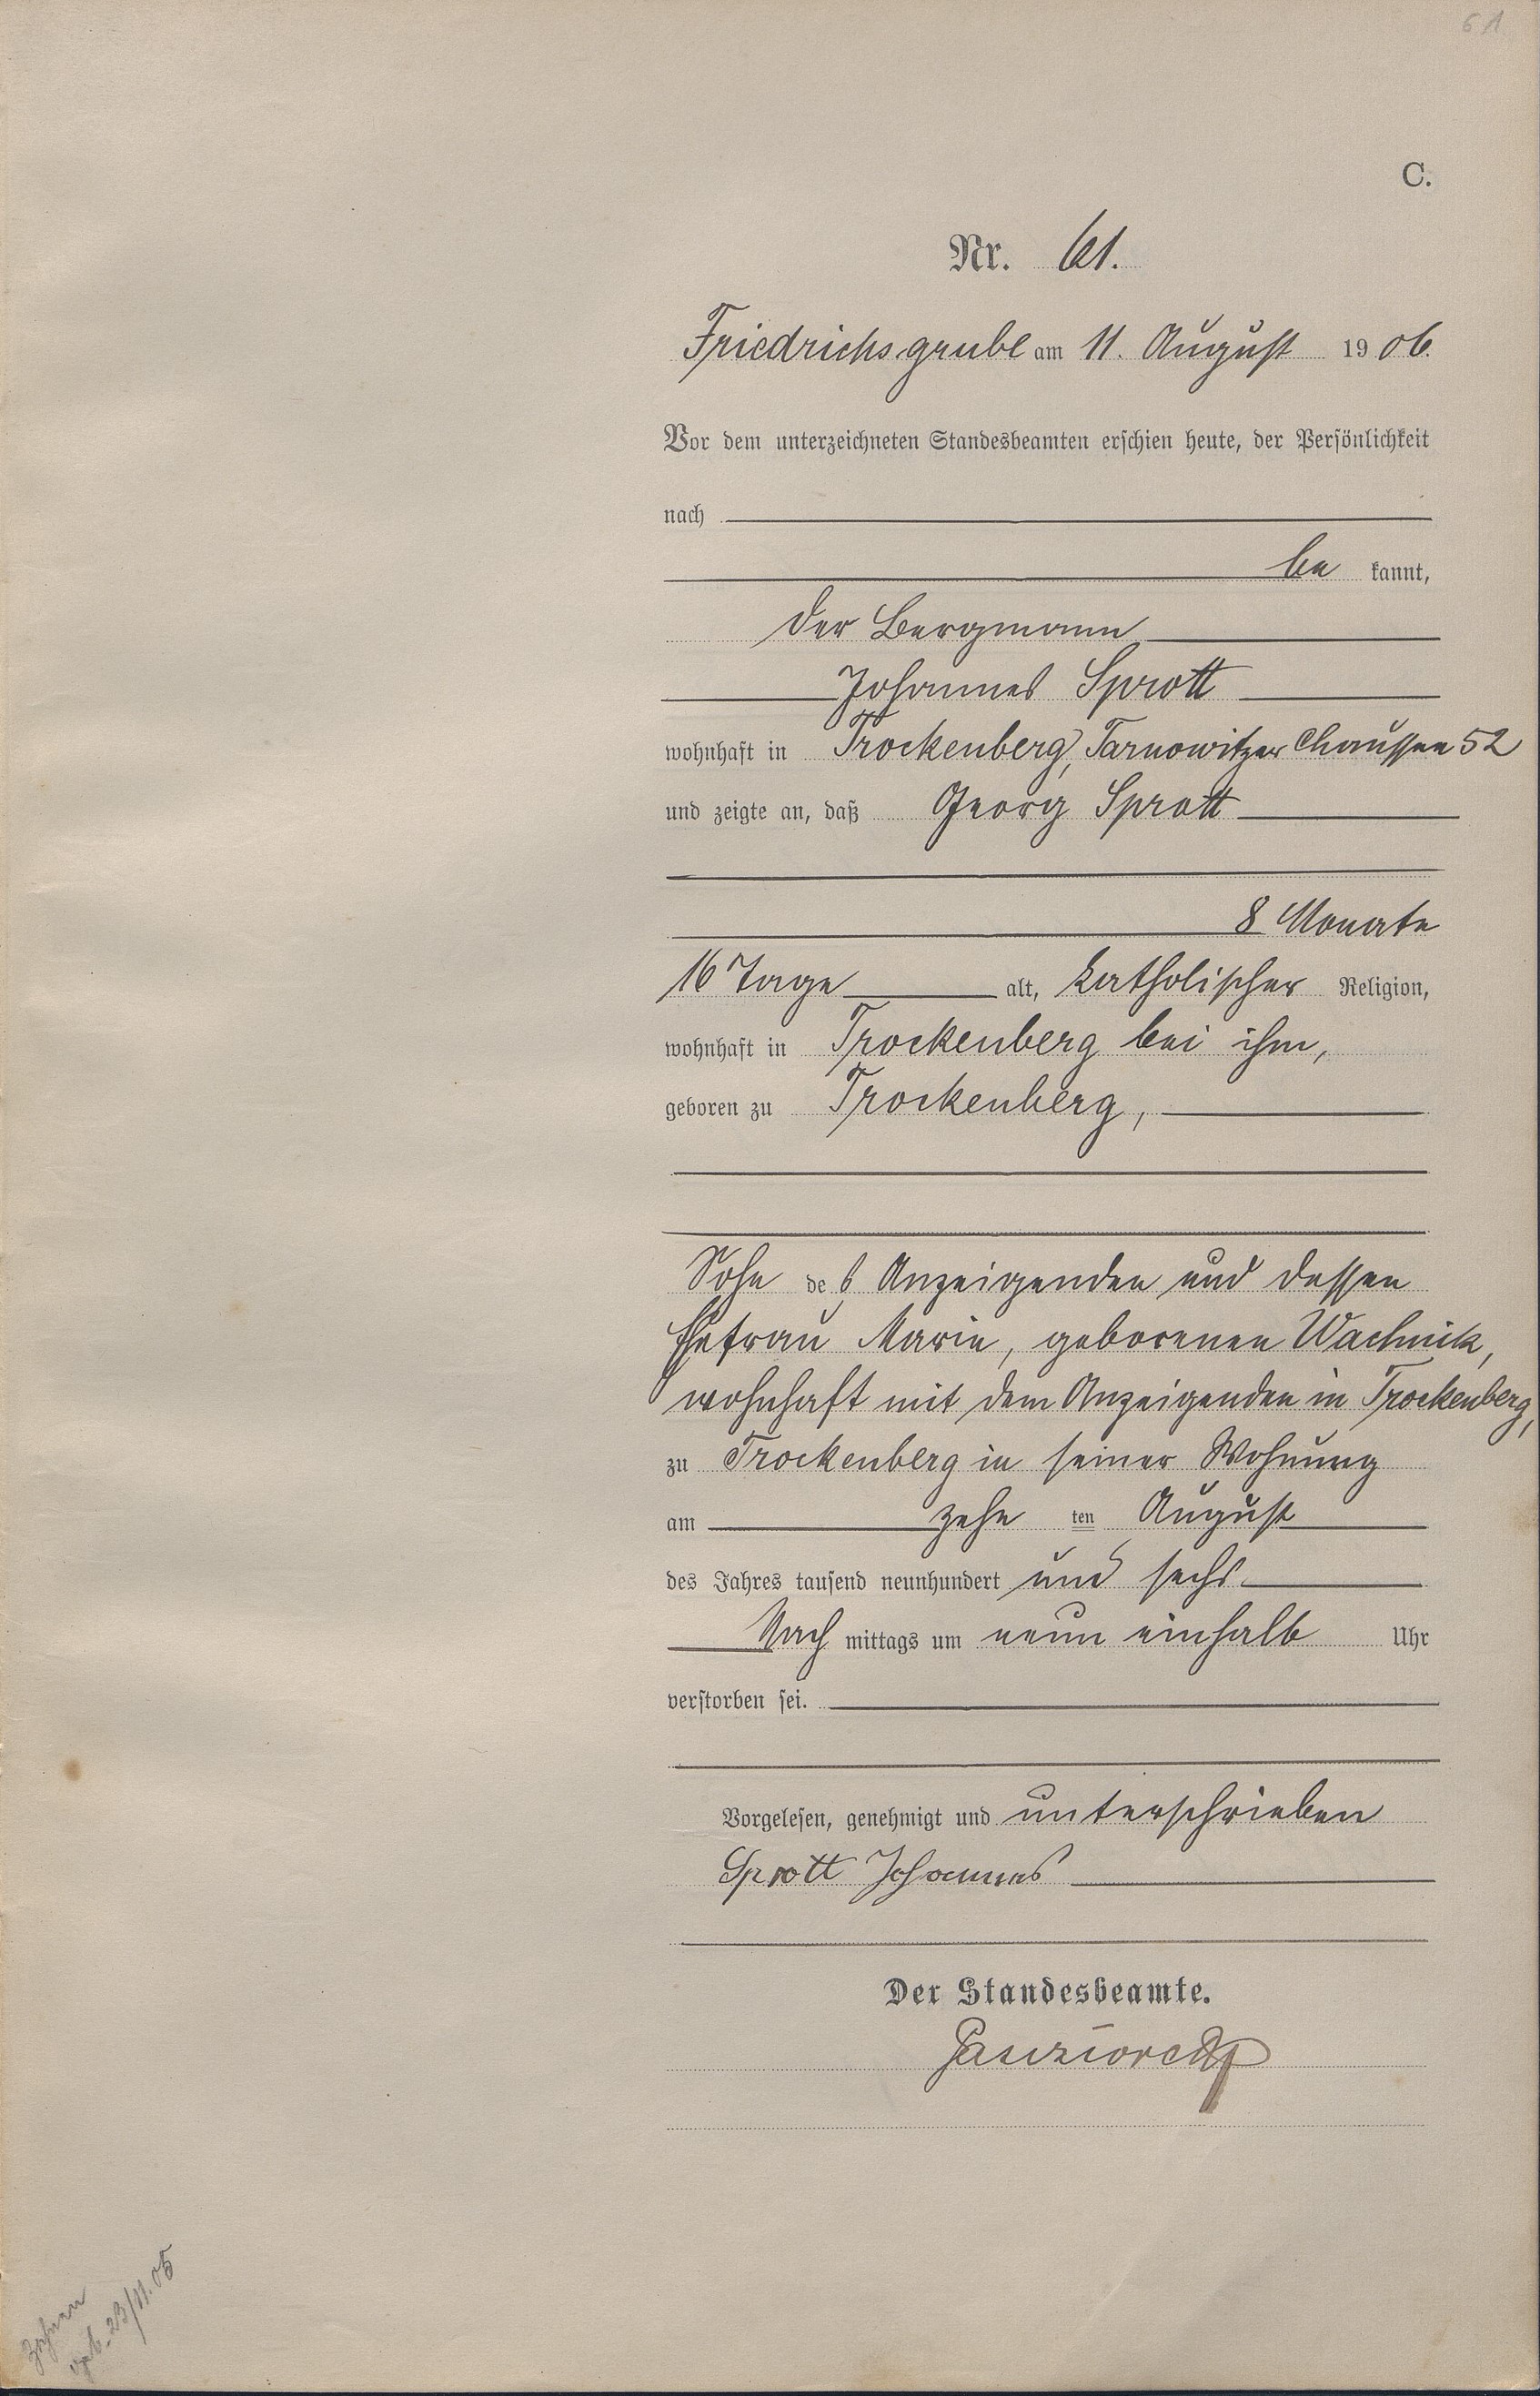 61
C.
Nr. 61.
Friedrichsgrube am 11. August 1906.
Vor dem unterzeichneten Standesbeamten erschien heute, der Persönlichkeit
nach
be kannt,
der Bergmann
Johannes Sprott
wohnhaft in Trockenberg, Tarnowitzer Chaussee 52
und zeigte an, daß Georg Sprott
8 Monate
16 Tage alt, katholischer Religion,
wohnhaft in Trockenberg bei ihm,
geboren zu Trockenberg,
Sohn des Anzeigenden und dessen
Ehefrau Marie, geborenen Wachnik,
wohnhaft mit dem Anzeigenden in Trockenberg,
zu Trockenberg in seiner Wohnung
am zehn ten August
des Jahres tausend neunhundert und sechs
Nach mittags um neun einhalb Uhr
verstorben sei.
Vorgelesen, genehmigt und unterschrieben
Sprott Johannes
Der Standesbeamte.
geb. 23/11.05